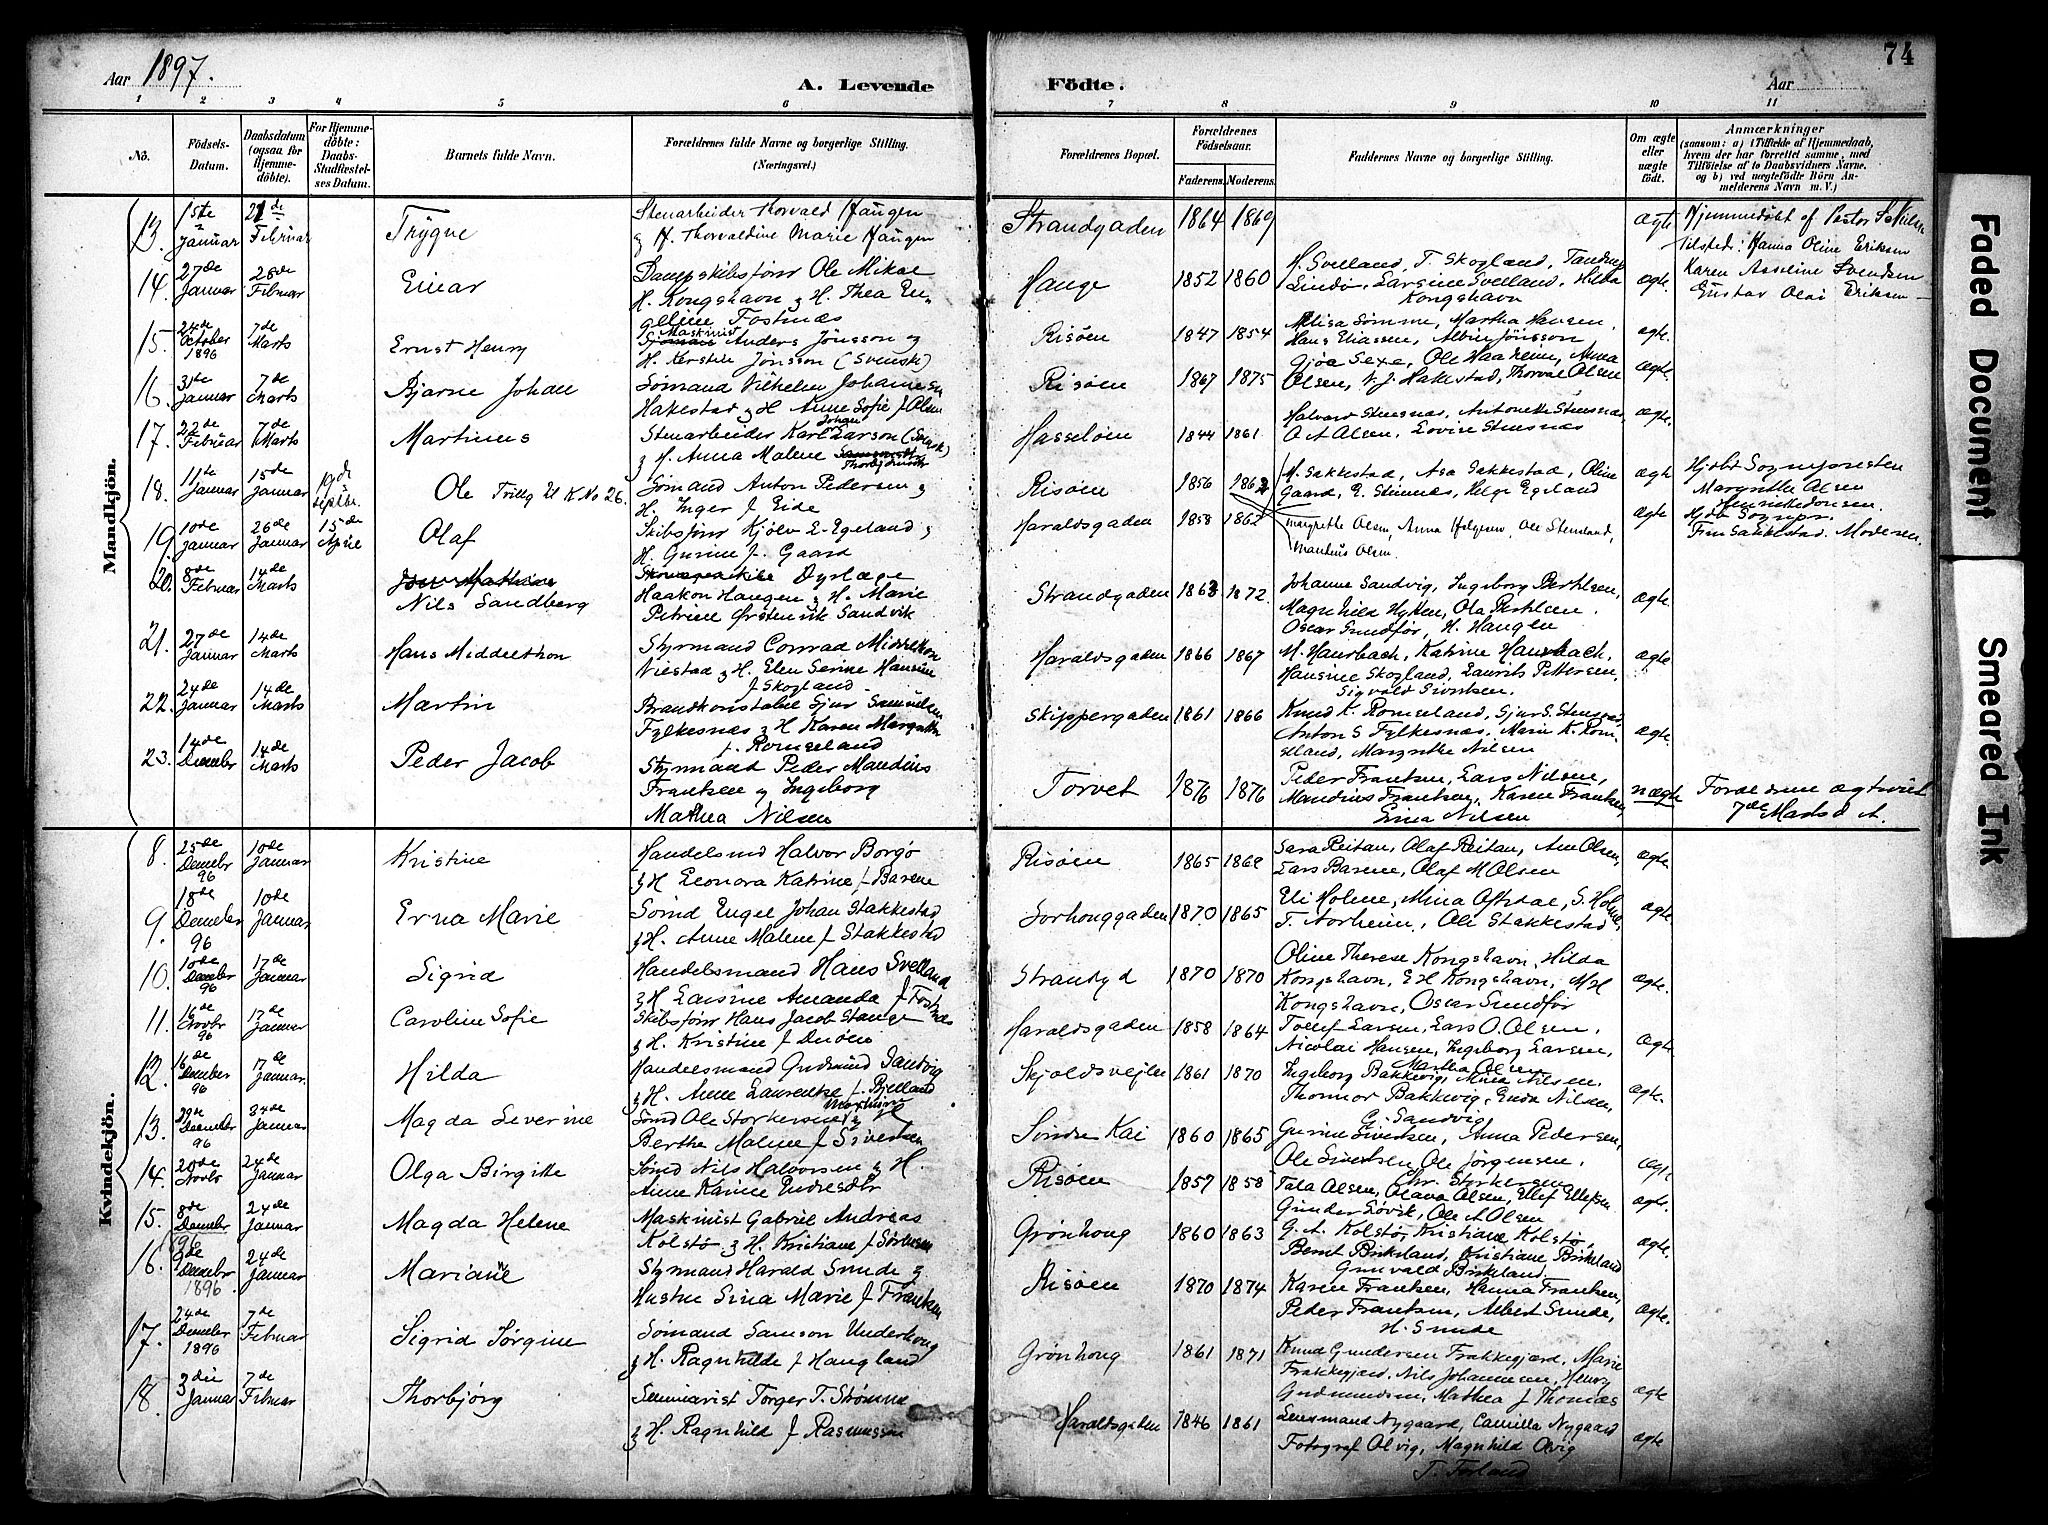 74
Aar 1897.
A. Levende
Födte.
Aar
1 2 3 4 5 6 7 8 9 10 11
No.
Födsels-Datum.
Daabsdatum (ogsaa for Hjemmedöbte).
For Hjemmedöbte: Daabs-Stadfæstelses Datum.
Barnets fulde Navn.
Forældrenes fulde Navne og borgerlige Stilling. (Næringsvei.)
Forældrenes Bopæl.
Forældrenes Födselsaar.
Faderens. Moderens.
Faddernes Navne og borgerlige Stilling.
Om ægte eller uægte födt.
Anmærkninger
(saasom: a) i Tilfælde af Hjemmedaab, hvem der har forrettet samme, med Tilföielse af to Daabsvidners Navne. og b) ved uægtefödte Börn Anmelderens Navn m. V.)
Mandkjön.
13. 15de Januar 21de Februar Trygve Stenarbeider Thorvald Haugen
& H. Thorvaldine Marie Haugen Strandgaden 1864 1869 ægte Hjemmedöbt af Pastor
tilstede: Hanna Oline Eriksen
14. 27de Januar 28de Februar Einar Dampskibsförer Ole Mikal
H. Kongshavn & H. Thea En-
geline Fostnæs Hauge 1852 1860 H. Svelland, T. Skogland,
Lindø, Larsine Svelland, Hilda
Kongshavn ægte. Karen Asseline Svendsen
Gustav Olai Eriksen
15. 24de October 1896 7de Marts Ernst Henry Maskinist Anders Jönsson og
H. Kerstin Jönsson (Svensk) Risøen 1847 1854 Elisa Sømme, Martha Hansen,
Hans Eliassen, Albin Jönsson ægte.
16. 31te Januar 7de Marts Bjarne Johan Sømand Vilhelm Johannesen
Hakestad & H Anne Sofie f Olsen Risøen 1867 1875 Gjøa Sexe, Ole Haaheim, Anna
Olsen, V. J. Hakestad, Thorval Olsen ægte.
17. 22de Februar 7de Marts Martinus Stenarbeider Karl Johan Larson (Svensk)
& H. Anna Malene Hasseløen 1844 1861 Halvard Stensnæs, Antonette Stensnæs,
O A Olsen, Lovise Stensnæs ægte.
18. 11de Januar 15de Januar 19de Septbr. Ole Trillg til K. No 26. Sømand Anton Pedersen &
H. Inger f Eide Risøen 1856 1862 H. Sakkestad, Asa Sakkestad, Oline
Gaard, E. Stennæs, Helge Egeland ægte Hjdbt Sognepresten
Margrethe Olsen
19. 10de Januar 26de Januar 15de April Olaf Skibsförer Kjölv E. Egeland &
H. Gurine f. Gaard Haraldsgaden 1858 1862 Margrethe Olsen, Anna Helgesen, Ole Stensland,
Mathias Olsen. ægte Sognepr.
Sakkestad. Moderen.
20. 8de Februar 14de Marts Nils Sandberg Dyrlæge
Haakon Haugen & H. Marie
Petrine Ørstenvik Sandvik Strandgaden 1863 1872 Johanne Sandvig, Ingeborg Berthelsen,
Magnhild Hytten, Ola Berthelsen,
Oscar Sundfør, H. Haugen ægte.
21. 27de Januar 14de Marts Hans Middelthon Styrmand Conrad Middelthon
Nilstad & H. Elen Serine Hansine
f Skogland Haraldsgaden 1866 1867 M. Hausbach, Katrine Hausbach,
Hansine Skogland, Laurits Pettersen,
Sigvald Sivertsen. ægte
22. 24de Januar 14de Marts Martin Brandkonstabel Sjur Samuelsen
Fylkesnæs & H Karen Margrethe
f. Romseland Skippergaden 1861 1866 Knud K. Romseland, Sjur S. Stensnæs,
Anton S Fylkesnæs, Marie K. Rom-
seland, Margrethe Nilsen ægte.
23. 14de Decembr 14de Marts Peder Jacob Styrmand Peder Mandius
Frantsen og Ingeborg
Mathea Nilsen Torvet 1876 1876 Peder Frantsen, Lars Nilsen,
Mandius Frantsen, Karen Frantsen,
Ema Nilsen uægte Forældrene ægteviet
7de Marts d. A.
Kvindekjön.
8. 25de Decmbr 96 10de Januar Kristine Handelsmd Halvor Borgø
& H Leonora Katrine f Barene Risøen 1865 1868 Sara Reitan, Olaf Reitan, Ane Olsen,
Lars Barene, Olaf M Olsen ægte.
9. 18de Decmbr 96 10de Januar Erna Marie Sømd Engel Johan Stakkestad
& H. Anne Malene f Stakkestad Sørhouggaden 1870 1865 Eli Holme, Mina Aftdal, S. Holme,
T. Norheim, Oli Stakkestad ægte.
10. 10de Decmbr 96 17de Januar Sigrid Handelsmand Hans Svelland
& H Larsine Amanda f Fostnæs Strandgd 1870 1870 Oline Therese Kongshavn, Hilda
Kongshavn, E H Kongshavn, M H
Kongshavn, Oscar Sundfør ægte.
11. 16de Novbr 96 17de Januar Caroline Sofie Skibsförer Hans Jacob Stange
& H. Kristine f Haraldsgaden 1858 1864 Tollef Larsen, Lars O. Olsen,
Nicolai Hansen, Ingeborg Larsen,
Martha Olsen ægte.
12. 16de Decmber 96 17de Januar. Hilda Handelsmand Gudmund Sandvig
& H. Anne Laurentze f. Bjelland Skjoldsvejen 1861 1870 Ingeborg Bakkevig, Mina Nilsen,
Thonnor Bakkevig, Enda Nilsen,
G. Sandvig ægte.
13. 29de Decmber 96 24de Januar Magda Severine Sømd Ole Storkersen &
Berthe Malene f Sivertsen Søndre Kai 1860 1865 Gurine Sivertsen, Anna Pedersen,
Ole Sivertsen, Ole Jørgensen,
Chr. Storkersen ægte
14. 20de Novbr 24de Januar Olga Birgitte Sømd Nils Halvorsen & H.
Anne Karine Endresdtr Risøen 1857 1858 Tala Olsen, Olava Olsen, Ellef Ellefsen
Gunder Løvik, Ole A Olsen ægte.
15. 8de Decmbr 96 24de Januar Magda Helene Maskinist Gabriel Andreas
Kolstø & H. Kristiane f Sørensen Grønhoug 1860 1863 G. A. Kolstø, Kristiane Kolstø,
Bernt Birkeland, Kristiane Birkeland
Grunvald Birkeland ægte.
16. 9de Decmbr 1896 24de Januar Mariane Styrmand Harald Sunde &
Hustru Lina Marie f Frantsen Risøen 1870 1874 Karen Frantsen, Hanna Frantsen,
Peder Frantsen, Albert Sunde,
H. Sunde ægte.
17. 24de Decmbr 1896 7de Februar Sigrid Jørgine Sømand Samson Underhoug
& H. Ragnhilde f Haugland Grønhoug 1861 1871 Knud Gundersen Frakkegjærd, Marie
Frakkegjærd, Nils Johannesen, Henry
Gudmundsen, Mathea f Thomas ægte
18. 3die Januar 7de Februar Thorbjørg Seminarist Torger T. Strømme
& H. Ragnhild f Rasmussen Haraldsgaden 1846 1861 Lensmand Nygaard, Camilla Nygaard
Fotograf Olvig, Magnhild Olvig
T. Førland ægte
Faded Document
Smeared Ink